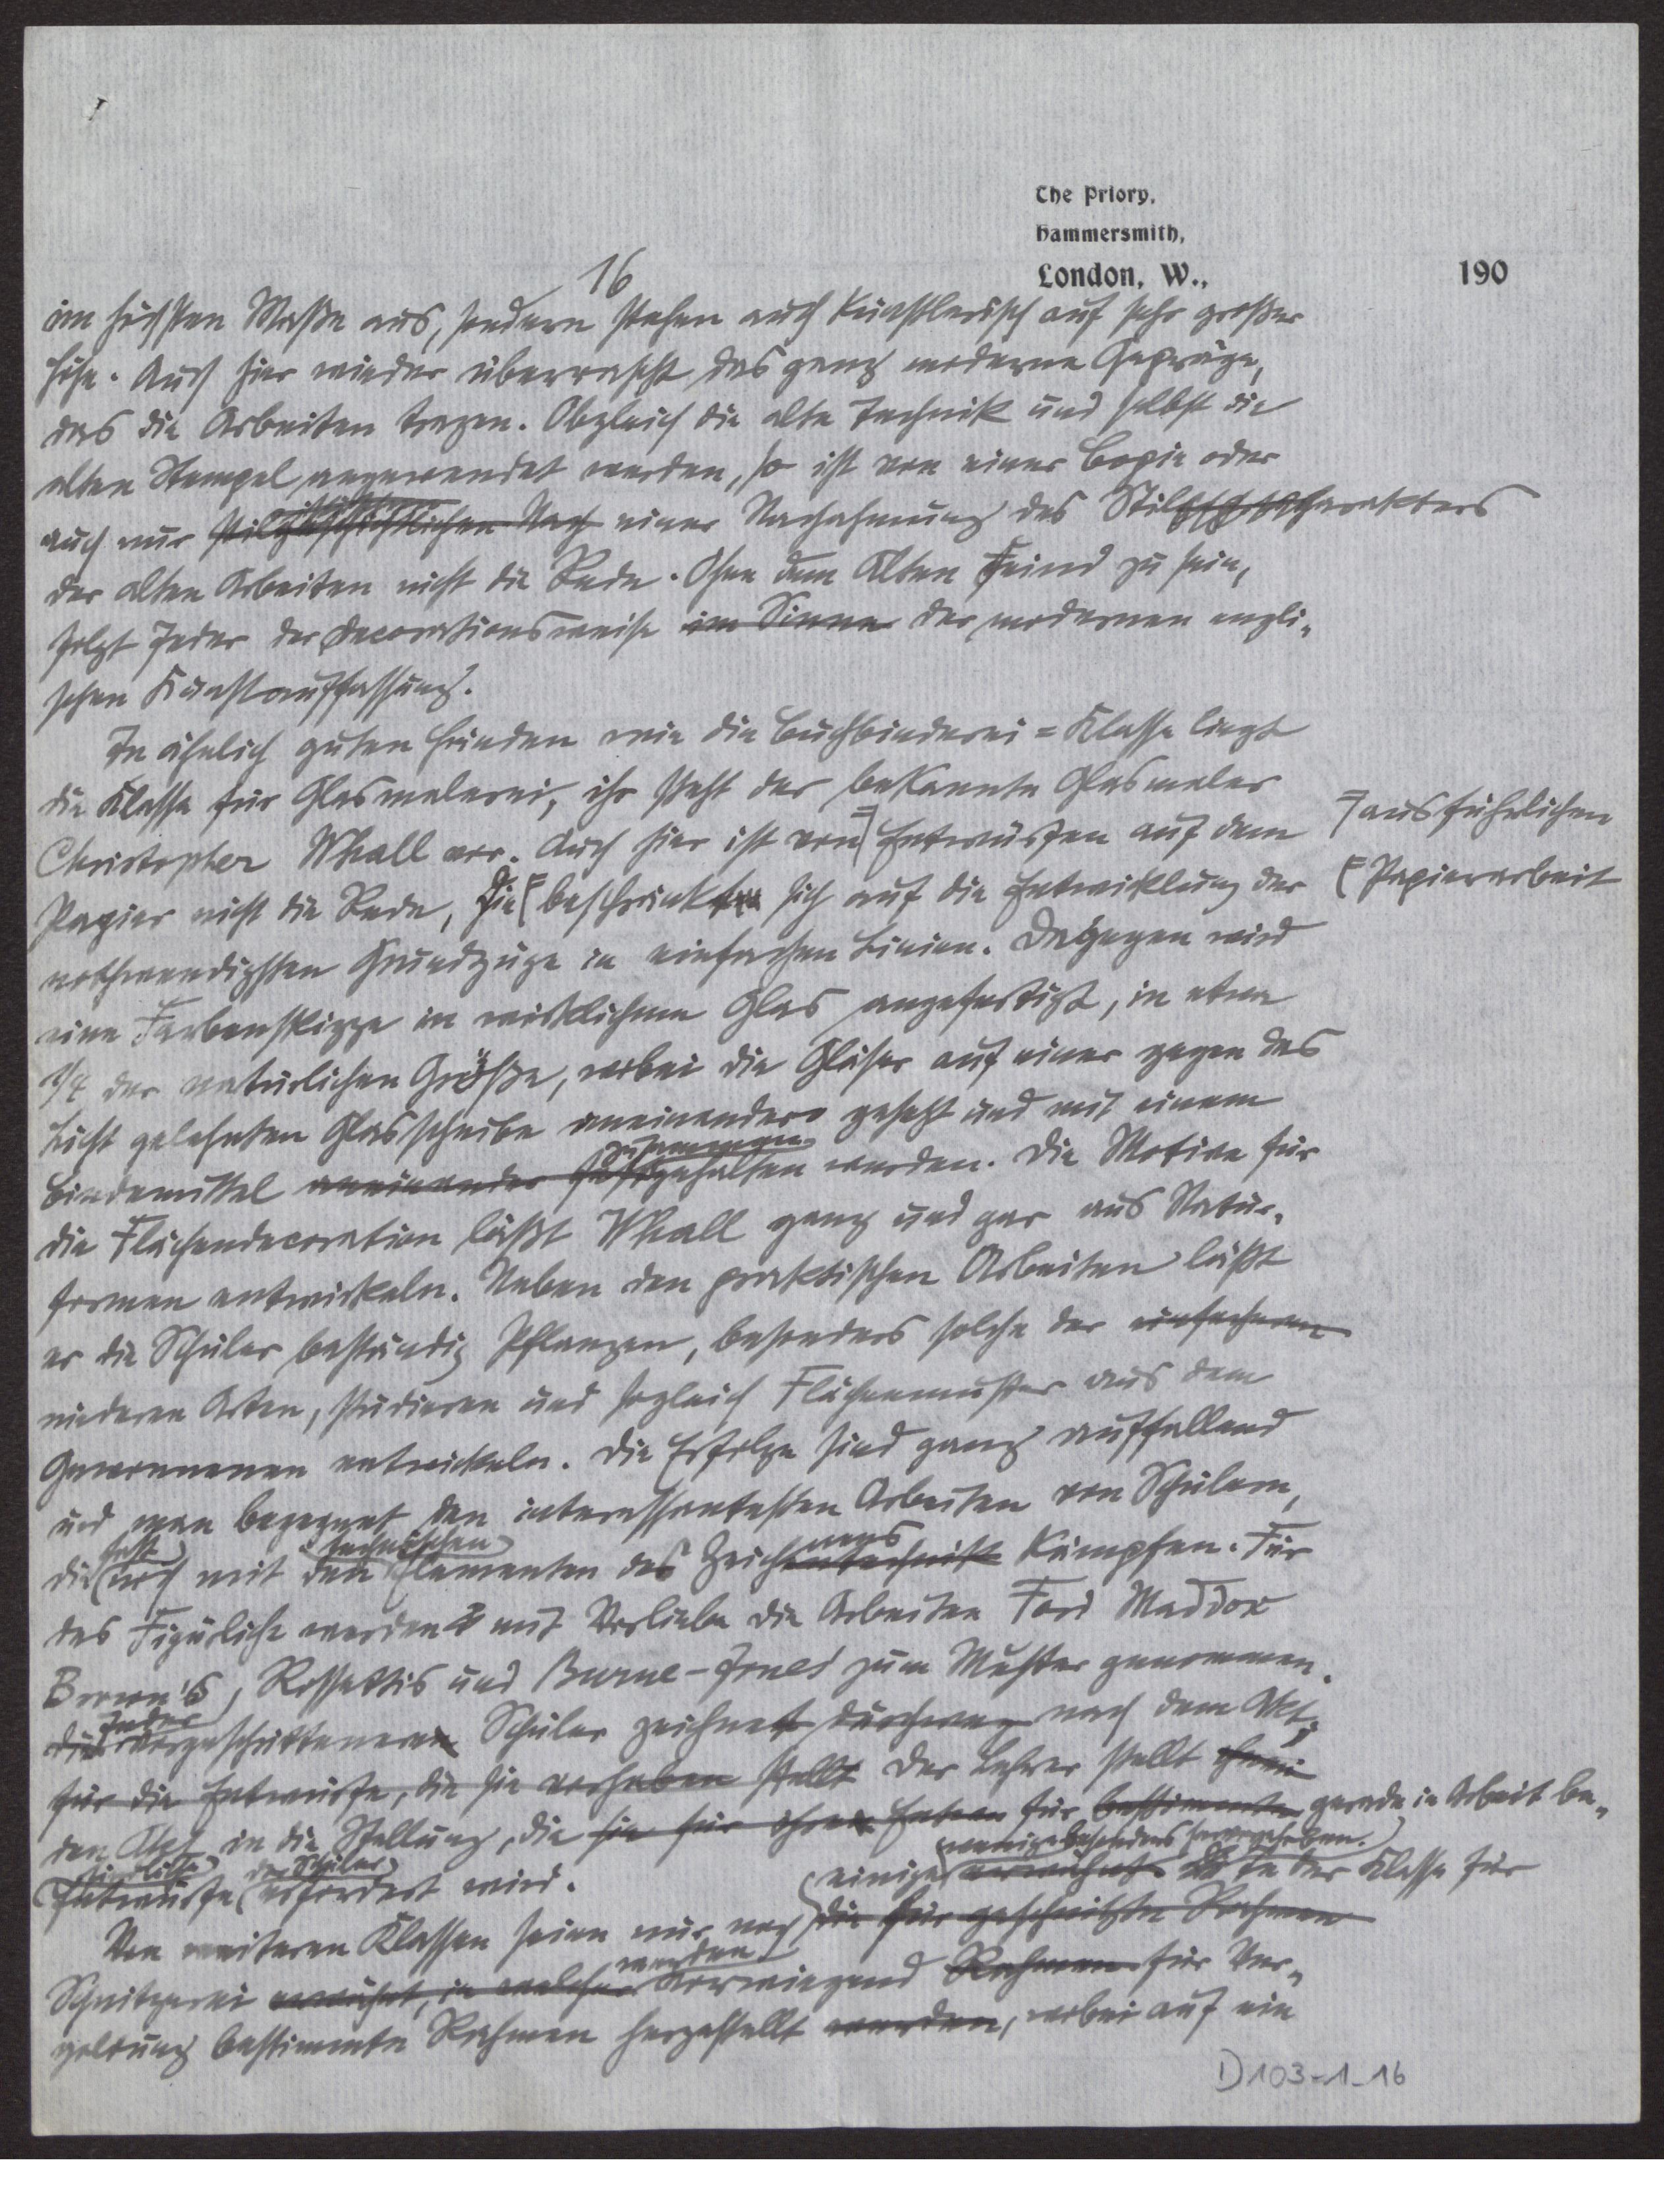 The Priory,
Hammersmith,
London, W., 190
16
im höchsten Maße aus, sondern stehen auch künstlerisch auf sehr großer
Höhe. Auch hier wieder überrascht das ganz moderne Gepräge,
das die Arbeiten tragen. Obgleich die alte Technik und selbst die
alten Stempel angewendet werden, so ist von einer Copie oder
auch nur stilgeschichtlichen Nach einer Nachahmung des Stilcharakters
der alten Arbeiten nicht die Rede. Ohne dem Alten Feind zu sein,
folgt Jeder der Decorationsweise im Sinne der modernen engli-
schen Kunstauffassung.
In ähnlich guten Händen wie die Buchbinderei-Klasse liegt
die Klasse für Glasmalerei, ihr steht der bekannte Glasmaler
Christopher Whall vor. Auch hier ist von Entwürfen auf dem
ausführlichen
Papier nicht die Rede, Die beschränkt sich auf die Entwicklung der
Papierarbeit
nothwendigsten Grundzüge in einfachen Linien. Dagegen wird
eine Farbenskizze in wirklichem Glas angefertigt, in etwa
1/4 der natürlichen Größe, wobei die Gläser auf einer gegen das
Licht gelehnten Glasscheibe aneinander gesetzt und mit einem
zusammen
Bindemittel aneinander festgehalten werden. Die Motive für
die Flächendecoration läßt Whall ganz und gar aus Natur-
formen entwickeln. Neben den praktischen Arbeiten läßt
er die Schüler beständig Pflanzen, besonders solche der einfacheren
niederen Arten, studieren und sogleich Flächenmuster aus dem
Gewonnenen entwickeln. Die Erfolge sind ganz auffallend
und man begegnet den interessantesten Arbeiten von Schülern,
fast technischen nens
die noch mit den Elementen des Zeichentechnik kämpfen. Für
das Figürliche werden mit Vorliebe die Arbeiten Ford Maddox
Brown's, Rossettis und Burne-Jones' zum Muster genommen.
Jeder
die vorgeschrittenere Schüler zeichnet durchweg nach dem Akt,
für die Entwürfe, die sie vorhaben stellt der Lehrer stellt
den Akt in die Stellung, die sie für ihren für bestimmte gerade in Arbeit be-
findliche der Schüler
Entwürfe erfordert wird.
wenige besonders hervorgehoben.
einige erwähnt In der Klasse für
Von weiteren Klassen seien nur noch die für geschnitzte Rahmen
werden
Schnitzerei erwähnt, in welcher vorwiegend Rahmen für Ver-
goldung bestimmte Rahmen hergestellt werden, wobei auf ein
D103-1-16